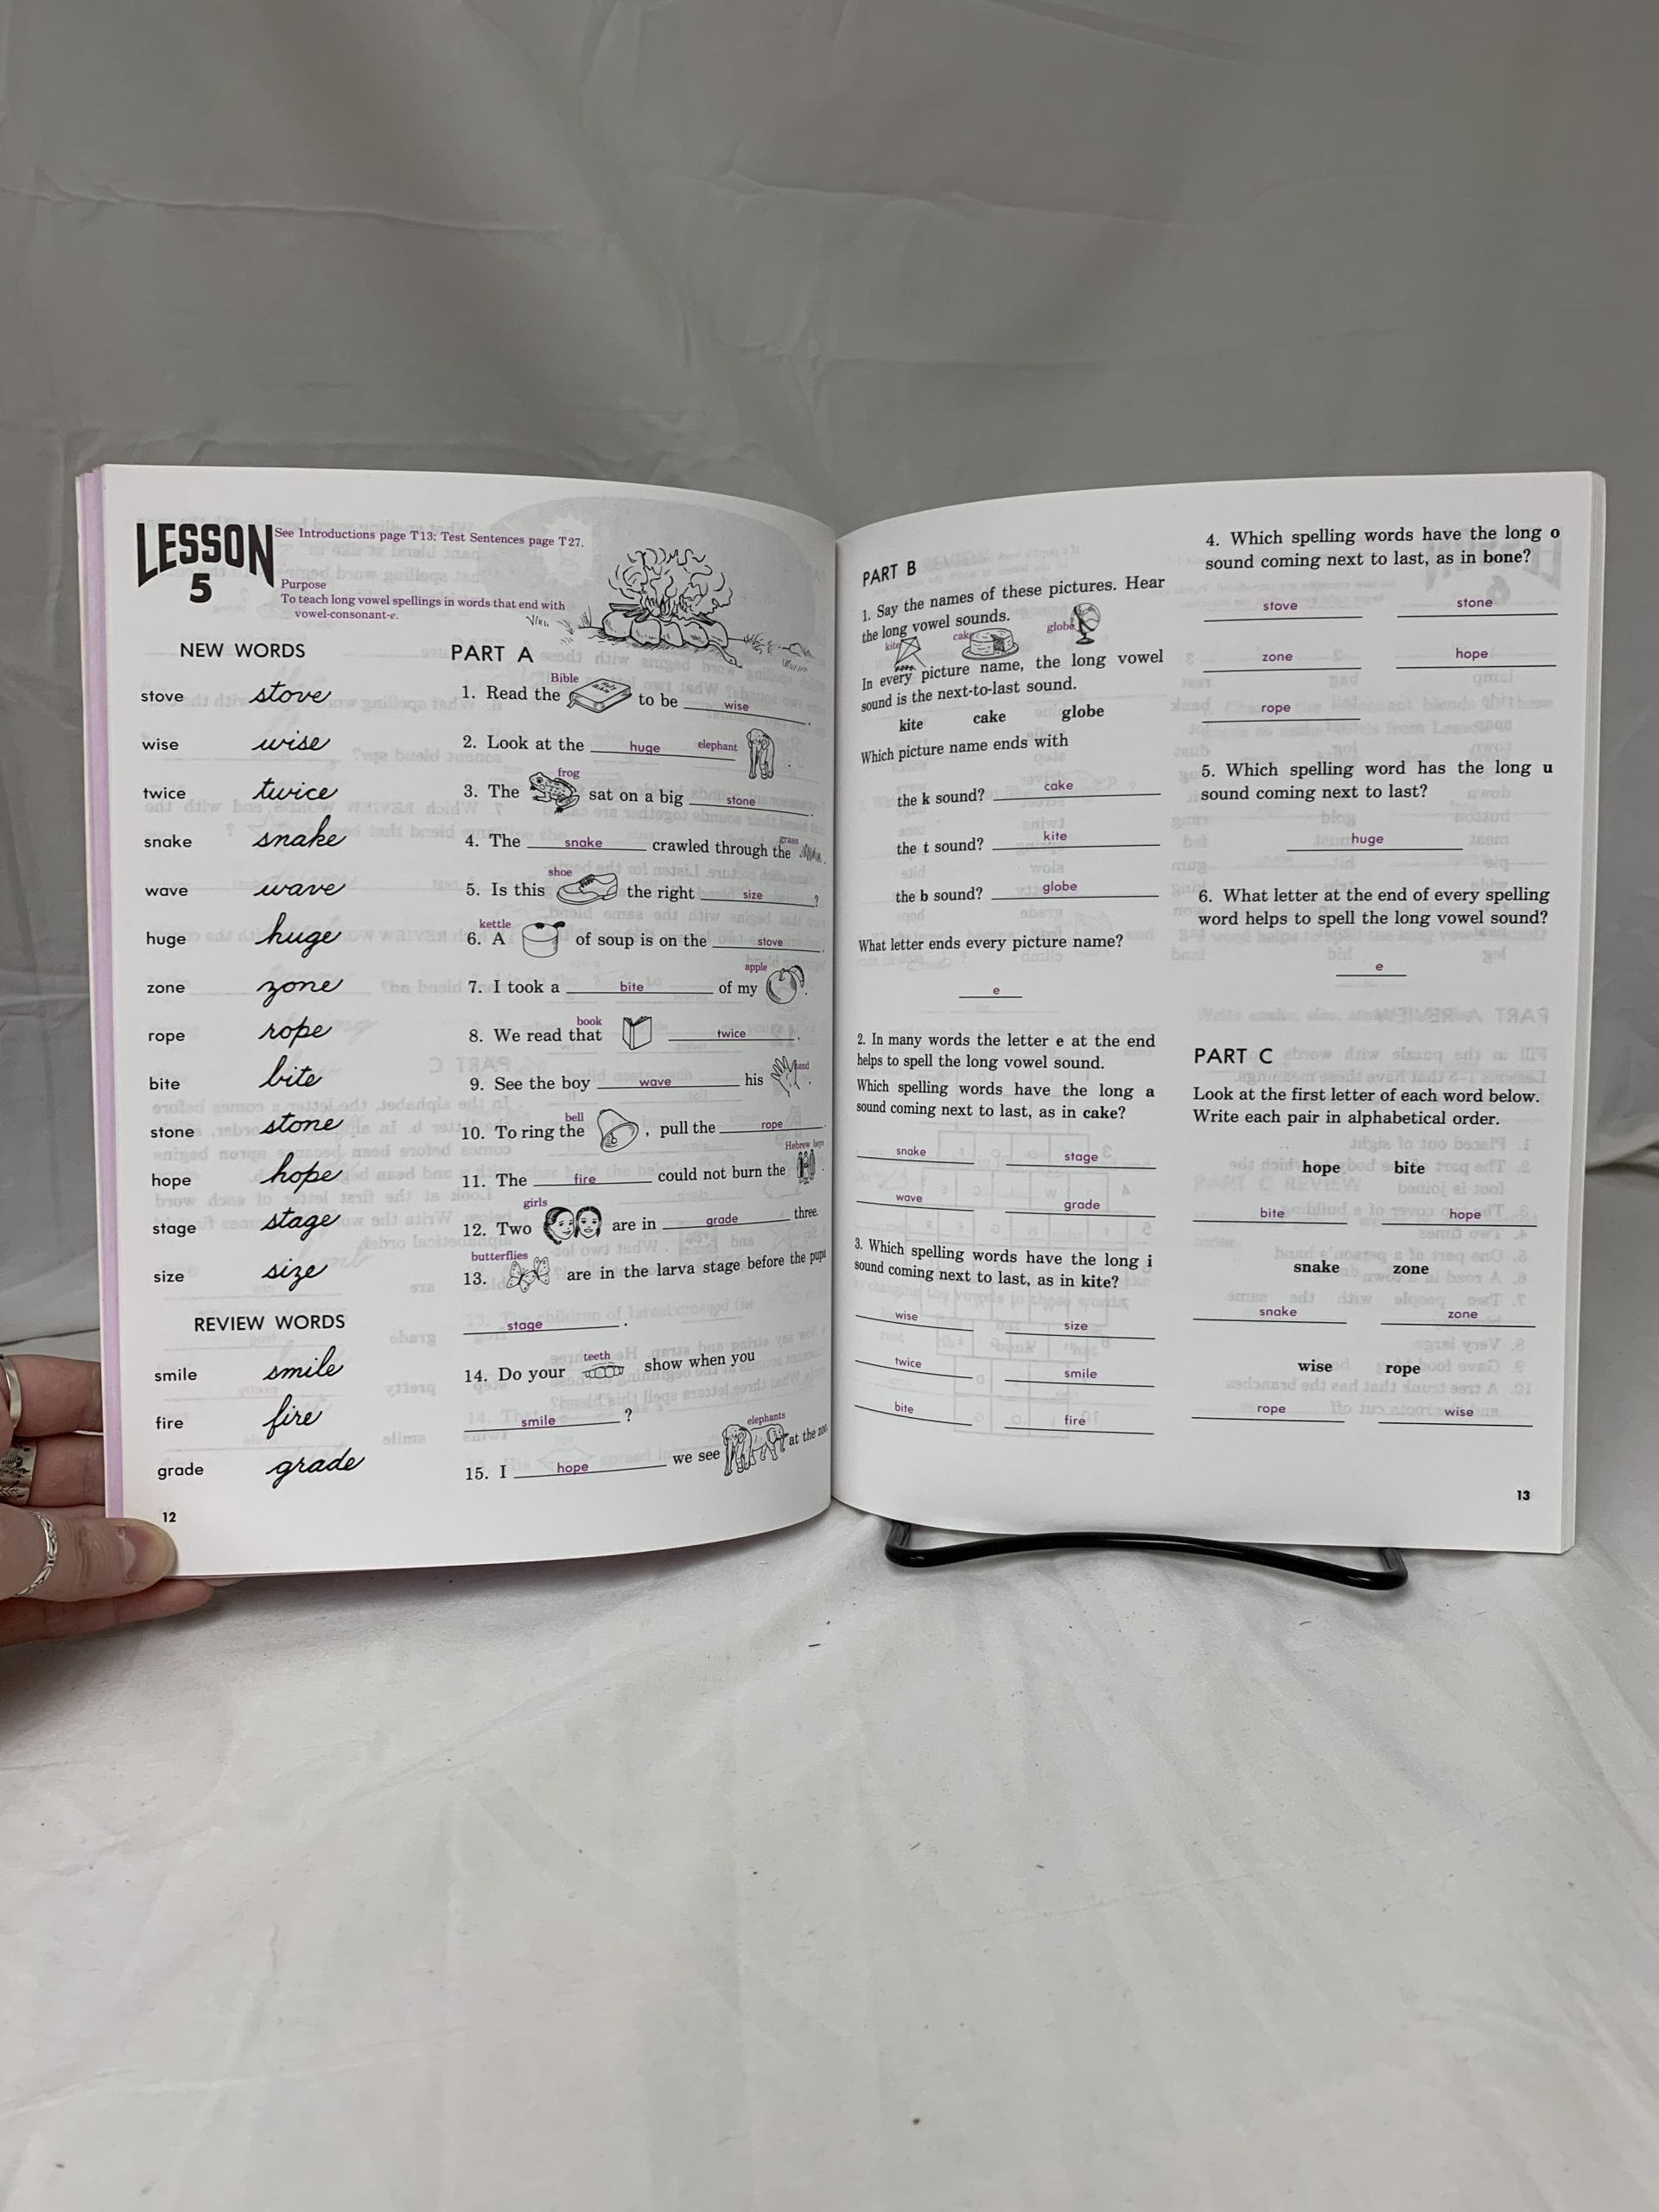 LESSON
5
See Introductions page T13; Test Sentences page T27.
Purpose
To teach long vowel spellings in words that end with
vowel-consonant-e.
NEW WORDS
stove stove
wise wise
twice twice
snake snake
wave wave
huge huge
zone zone
rope rope
bite bite
stone stone
hope hope
stage stage
size size
REVIEW WORDS
smile smile
fire fire
grade grade
12
PART A
Bible
1. Read the to be wise .
2. Look at the huge elephant .
frog
3. The sat on a big stone .
grass
4. The snake crawled through the .
shoe
5. Is this the right size ?
kettle
6. A of soup is on the stove .
apple
7. I took a bite of my .
book
8. We read that twice .
hand
9. See the boy wave his .
bell
10. To ring the , pull the rope .
Hebrew boys
11. The fire could not burn the .
girls
12. Two are in grade three.
butterflies
13. are in the larva stage before the pupa
stage .
teeth
14. Do your show when you
smile ?
elephants
15. I hope we see at the zoo.
PART B
1. Say the names of these pictures. Hear
the long vowel sounds.
kite cake globe
In every picture name, the long vowel
sound is the next-to-last sound.
kite cake globe
Which picture name ends with
the k sound? cake
the t sound? kite
the b sound? globe
What letter ends every picture name?
e
2. In many words the letter e at the end
helps to spell the long vowel sound.
Which spelling words have the long a
sound coming next to last, as in cake?
snake stage
wave grade
3. Which spelling words have the long i
sound coming next to last, as in kite?
wise size
twice smile
bite fire
4. Which spelling words have the long o
sound coming next to last, as in bone?
stove stone
zone hope
rope
5. Which spelling word has the long u
sound coming next to last?
huge
6. What letter at the end of every spelling
word helps to spell the long vowel sound?
e
PART C
Look at the first letter of each word below.
Write each pair in alphabetical order.
hope bite
bite hope
snake zone
snake zone
wise rope
rope wise
13